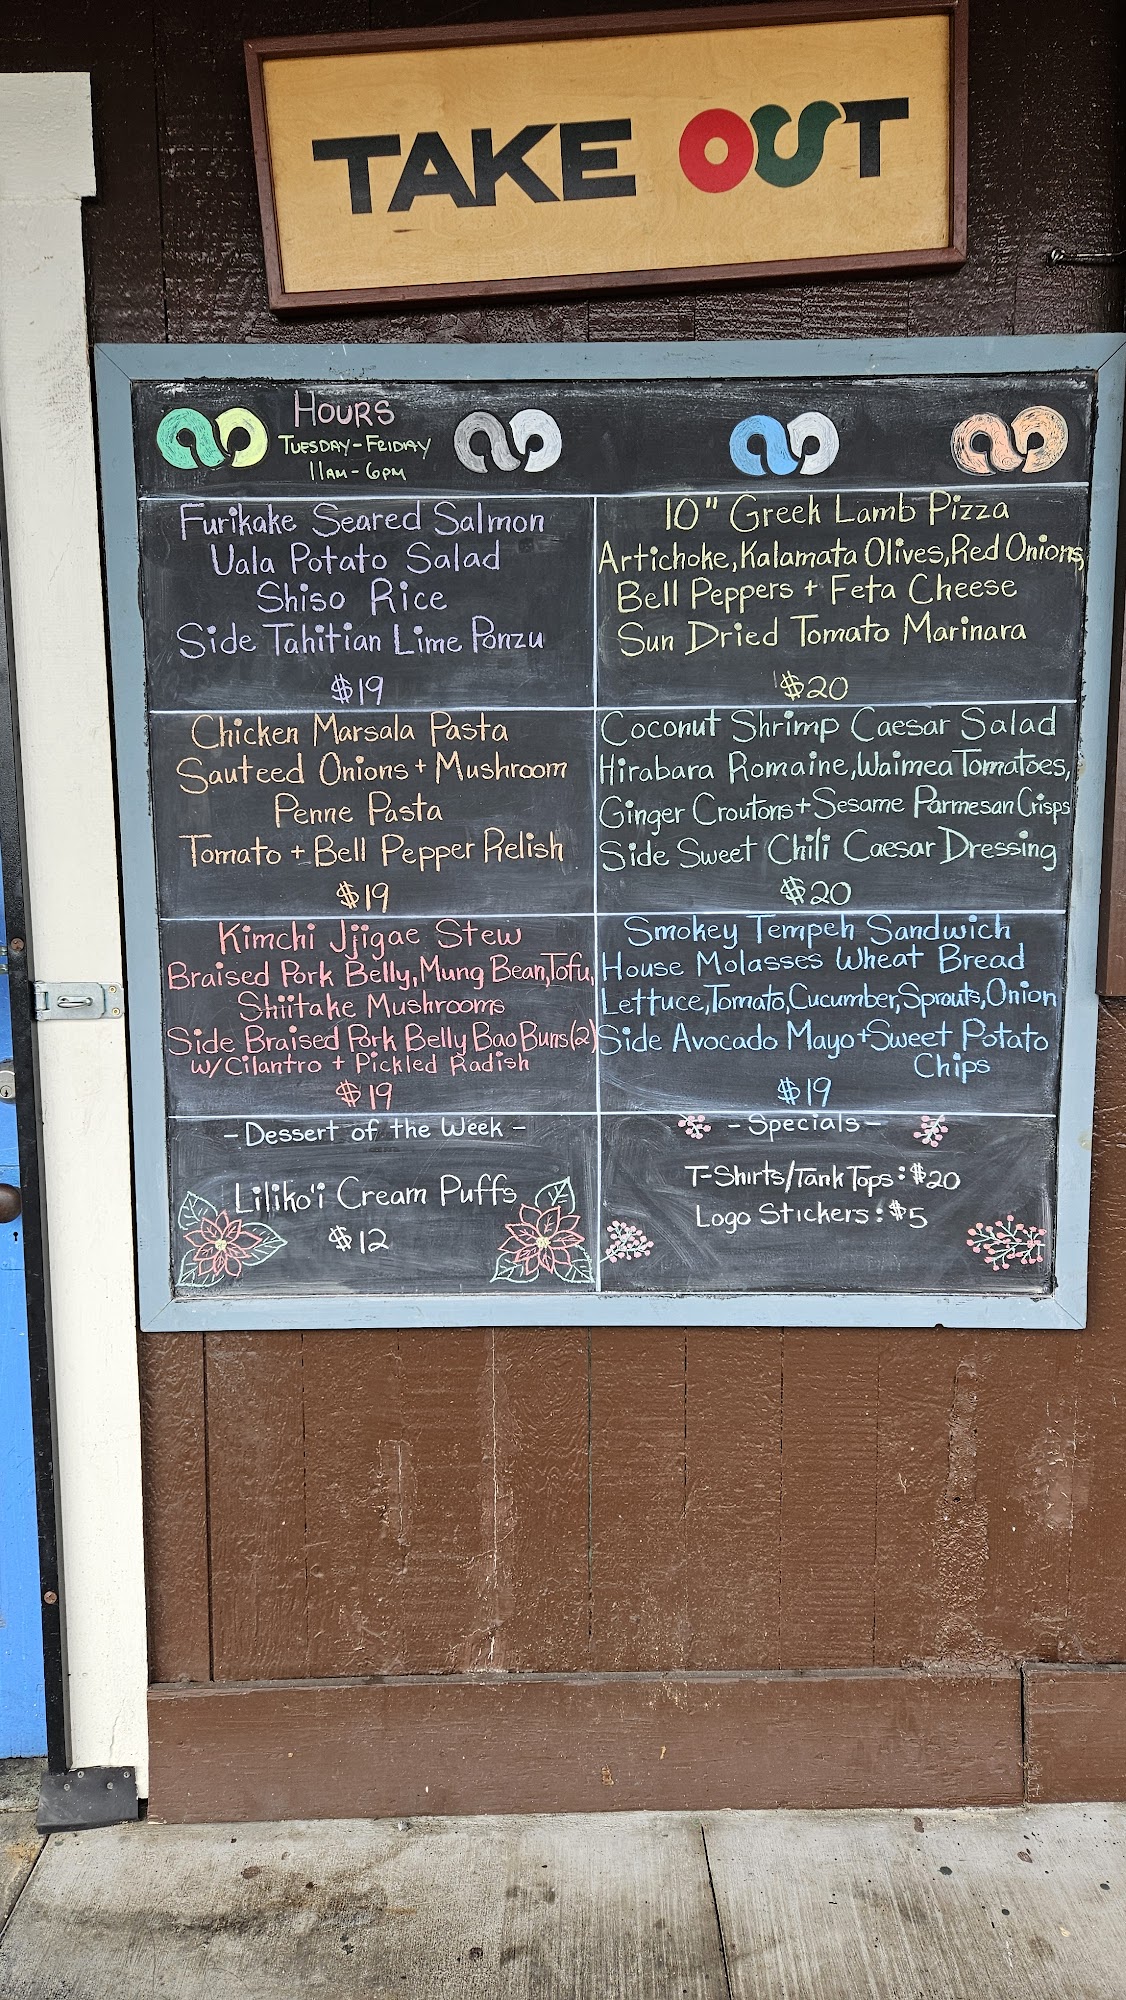 TAKE OUT
HOURS
TUESDAY-FRIDAY
11AM-6PM
Furikake Seared Salmon
Uala Potato Salad
Shiso Rice
Side Tahitian Lime Ponzu
$19
10" Greek Lamb Pizza
Artichoke, Kalamata Olives, Red Onions,
Bell Peppers + Feta Cheese
Sun Dried Tomato Marinara
$20
Chicken Marsala Pasta
Sauteed Onions + Mushroom
Penne Pasta
Tomato + Bell Pepper Relish
$19
Coconut Shrimp Caesar Salad
Hirabara Romaine, Waimea Tomatoes,
Ginger Croutons + Sesame Parmesan Crisps
Side Sweet Chili Caesar Dressing
$20
Kimchi Jjigae Stew
Braised Pork Belly, Mung Bean, Tofu,
Shiitake Mushrooms
Side Braised Pork Belly Bao Buns (2)
w/Cilantro + Pickled Radish
$19
Smokey Tempeh Sandwich
House Molasses Wheat Bread
Lettuce, Tomato, Cucumber, Sprouts, Onion
Side Avocado Mayo + Sweet Potato
Chips
$19
- Dessert of the Week -
Liliko'i Cream Puffs
$12
- Specials -
T-Shirts/Tank Tops: $20
Logo Stickers: $5